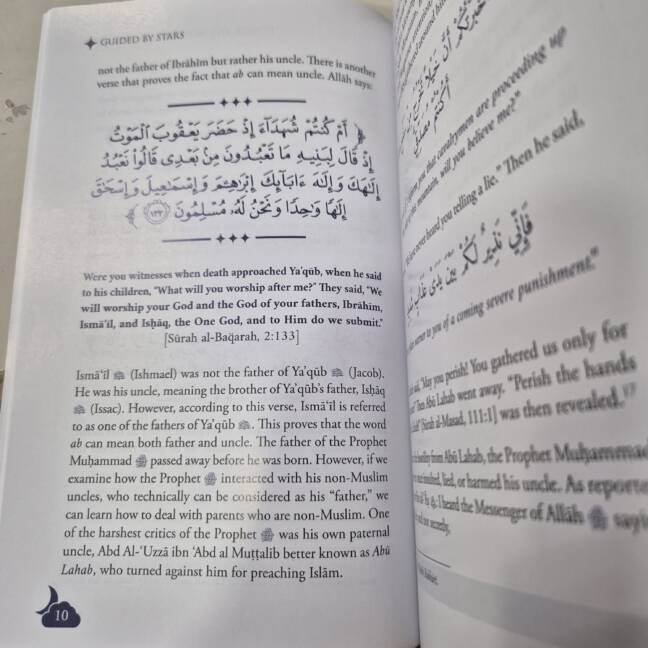 GUIDED BY STARS
not the father of Ibrāhīm but rather his uncle. There is another
verse that proves the fact that ab can mean uncle. Allāh says:
﴿ أَمْ كُنتُمْ شُهَدَآءَ إِذْ حَضَرَ يَعْقُوبَ ٱلْمَوْتُ
إِذْ قَالَ لِبَنِيهِ مَا تَعْبُدُونَ مِنۢ بَعْدِى قَالُوا۟ نَعْبُدُ
إِلَٰهَكَ وَإِلَٰهَ ءَابَآئِكَ إِبْرَٰهِۦمَ وَإِسْمَٰعِيلَ وَإِسْحَٰقَ
إِلَٰهًا وَٰحِدًا وَنَحْنُ لَهُۥ مُسْلِمُونَ ١٣٣ ﴾
Were you witnesses when death approached Ya'qūb, when he said
to his children, "What will you worship after me?" They said, "We
will worship your God and the God of your fathers, Ibrāhīm,
Ismā'īl, and Isḥāq, the One God, and to Him do we submit."
[Sūrah al-Baqarah, 2:133]
Ismā'īl ﷺ (Ishmael) was not the father of Ya'qūb ﷺ (Jacob).
He was his uncle, meaning the brother of Ya'qūb's father, Isḥāq
ﷺ (Issac). However, according to this verse, Ismā'īl is referred
to as one of the fathers of Ya'qūb ﷺ. This proves that the word
ab can mean both father and uncle. The father of the Prophet
Muḥammad ﷺ passed away before he was born. However, if we
examine how the Prophet ﷺ interacted with his non-Muslim
uncles, who technically can be considered as his "father," we
can learn how to deal with parents who are non-Muslim. One
of the harshest critics of the Prophet ﷺ was his own paternal
uncle, Abd Al-'Uzzā ibn 'Abd al Muṭṭalib better known as Abū
Lahab, who turned against him for preaching Islām.
10
you that cavalrymen are proceeding up
mountain, will you believe me?"
never heard you telling a lie." Then he said,
فَإِنِّي نَذِيرٌ لَكُمْ بَيْنَ يَدَيْ عَذَابٍ
to you of a coming severe punishment."
"May you perish! You gathered us only for
Then Abū Lahab went away. "Perish the hands
[Sūrah al-Masad, 111:1] was then revealed.
from Abū Lahab, the Prophet Muḥammad
insulted, lied, or harmed his uncle. As reported
I heard the Messenger of Allāh ﷺ
and not secretly.